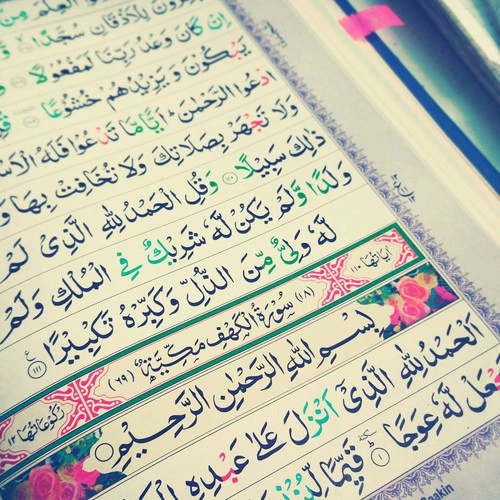 الْعِلْمَ مِنْ
يَخِرُّونَ لِلْاَذْقَانِ سُجَّدًا
اِنْ كَانَ وَعْدُ رَبِّنَا لَمَفْعُوْلًا
يَبْكُوْنَ وَ يَزِيْدُهُمْ خُشُوْعًا
ادْعُوا الرَّحْمٰنَ ؕ اَيًّا مَّا تَدْعُوْا فَلَهُ الْاَسْ
وَلَا تَجْهَرْ بِصَلَاتِكَ وَلَا تُخَافِتْ بِهَا وَ
ذٰلِكَ سَبِيْلًا ۝۱۱۰ وَقُلِ الْحَمْدُ لِلّٰهِ الَّذِىْ لَمْ
وَلَدًا وَّلَمْ يَكُنْ لَّهٗ شَرِيْكٌ فِى الْمُلْكِ وَلَمْ
لَّهٗ وَلِىٌّ مِّنَ الذُّلِّ وَكَبِّرْهُ تَكْبِيْرًا ۝۱۱۱ ع
اٰيَاتُهَا ۱۱۰ (۱۸) سُوْرَةُ الْكَهْفِ مَكِّيَّةٌ (۶۹) رُكُوْعَاتُهَا ۱۲
بِسْمِ اللّٰهِ الرَّحْمٰنِ الرَّحِيْمِ
اَلْحَمْدُ لِلّٰهِ الَّذِىْۤ اَنْزَلَ عَلٰى عَبْدِهِ الْكِ
جْعَلْ لَّهٗ عِوَجًا ۝۱ قَيِّمًا لِّيُنْذِ
akin